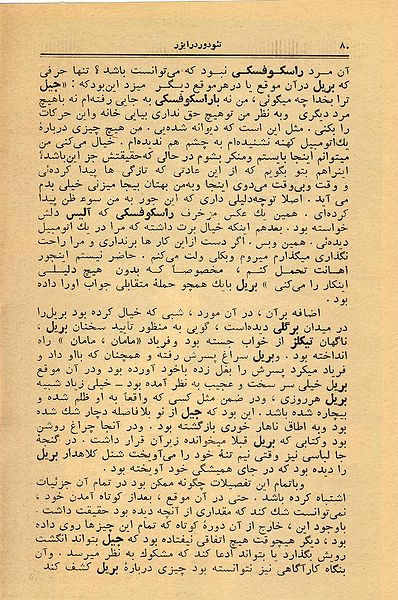 ۸۰ تئودوردرایزر
آن مرد راسکوفسکی نبود که می‌توانست باشد ؟ تنها حرفی
که بریل در آن موقع یا درهر موقع دیگر میزد این‌بود که : «جیل
ترا بخدا چه میگوئی ، من نه باراسکوفسکی به جایی رفته‌ام نه باهیچ
مرد دیگری وبه نظر من توهیچ حق نداری بیایی خانه واین حرکات
را بکنی . مثل این است که دیوانه شده‌یی . من هیچ چیزی دربارهٔ
یك‌اتومبیل کهنه نشنیده‌ام به چشم هم ندیده‌ام . خیال می‌کنی من
میتوانم اینجا بایستم ومنکر بشوم در حالی که‌حقیقتش جز این‌باشد؟
اینراهم بتو بگویم که از این عادتی که تازگی ها پیدا کرده‌ئی
و وقت وبی‌وقت می‌دوی اینجا وبه‌من بهتان بیجا میزنی خیلی بدم
می آید . اصلا توچه‌دلیلی داری که این جور به من سوء ظن پیدا
کرده‌ای . همین یك عکس مزخرف راسکوفسکی که آلیس دلش
خواسته بود . بعدهم اینکه خیال برت داشته که مرا در یك اتومبیل
دیده‌ئی . همین وبس . اگر دست ازاین کار ها برنداری و مرا راحت
نگذاری میگذارم میروم وبکلی ولت می‌کنم . حاضر نیستم اینجور
اهانت تحمل کنم ، مخصوصا که بدون هیچ دلیلی
اینکار را می‌کنی » بریل بایك همچو حملهٔ متقابلی جواب اورا داده
بود .
اضافه برآن ، در آن مورد ، شبی که خیال کرده بود بریل‌را
در میدان برگلی دیده‌است ، گویی به منظور تایید سخنان بریل ،
ناگهان تیکلز از خواب جسته بود وفریاد «مامان ، مامان » راه
انداخته بود . وبریل سراغ پسرش رفته و همچنان که بااو داد و
فریاد میکرد پسرش را بغل زده باخود آورده بود ودر آن موقع
بریل خیلی سر سخت و عجیب به نظر آمده بود ـ خیلی زیاد شبیه
بریل هرروزی ، ودر ضمن مثل کسی که واقعا به او ظلم شده و
بیچاره شده باشد . این بود که جیل از نو بلافاصله دچار شك شده
بود وبه اطاق ناهار خوری بازگشته بود . ودر آنجا چراغ روشن
بود وکتابی که بریل قبلا میخوانده زیرآن قرار داشت . در گنجهٔ
جا لباسی نیز وقتی نیم تنهٔ خود را می‌آویخت شنل کلاهدار بریل
را دیده بود که در جای همیشگی خود آویخته بود .
وباتمام این تفصیلات چگونه ممکن بود در تمام آن جزئیات
اشتباه کرده باشد . حتی در آن موقع ، بعداز کوتاه آمدن خود ،
نمی‌توانست شك کند که مقداری از آنچه دیده بود حقیقت داشت .
باوجود این ، خارج از آن دورهٔ کوتاه که تمام این چیزها روی داده
بود ، دیگر هیچوقت هیچ اتفاقی نیفتاده بود که جیل بتواند انگشت
رویش بگذارد یا بتواند ادعا کند که مشکوك به نظر میرسد . وآن
بنگاه کارآگاهی نیز نتوانسته بود چیزی دربارهٔ بریل کشف کند